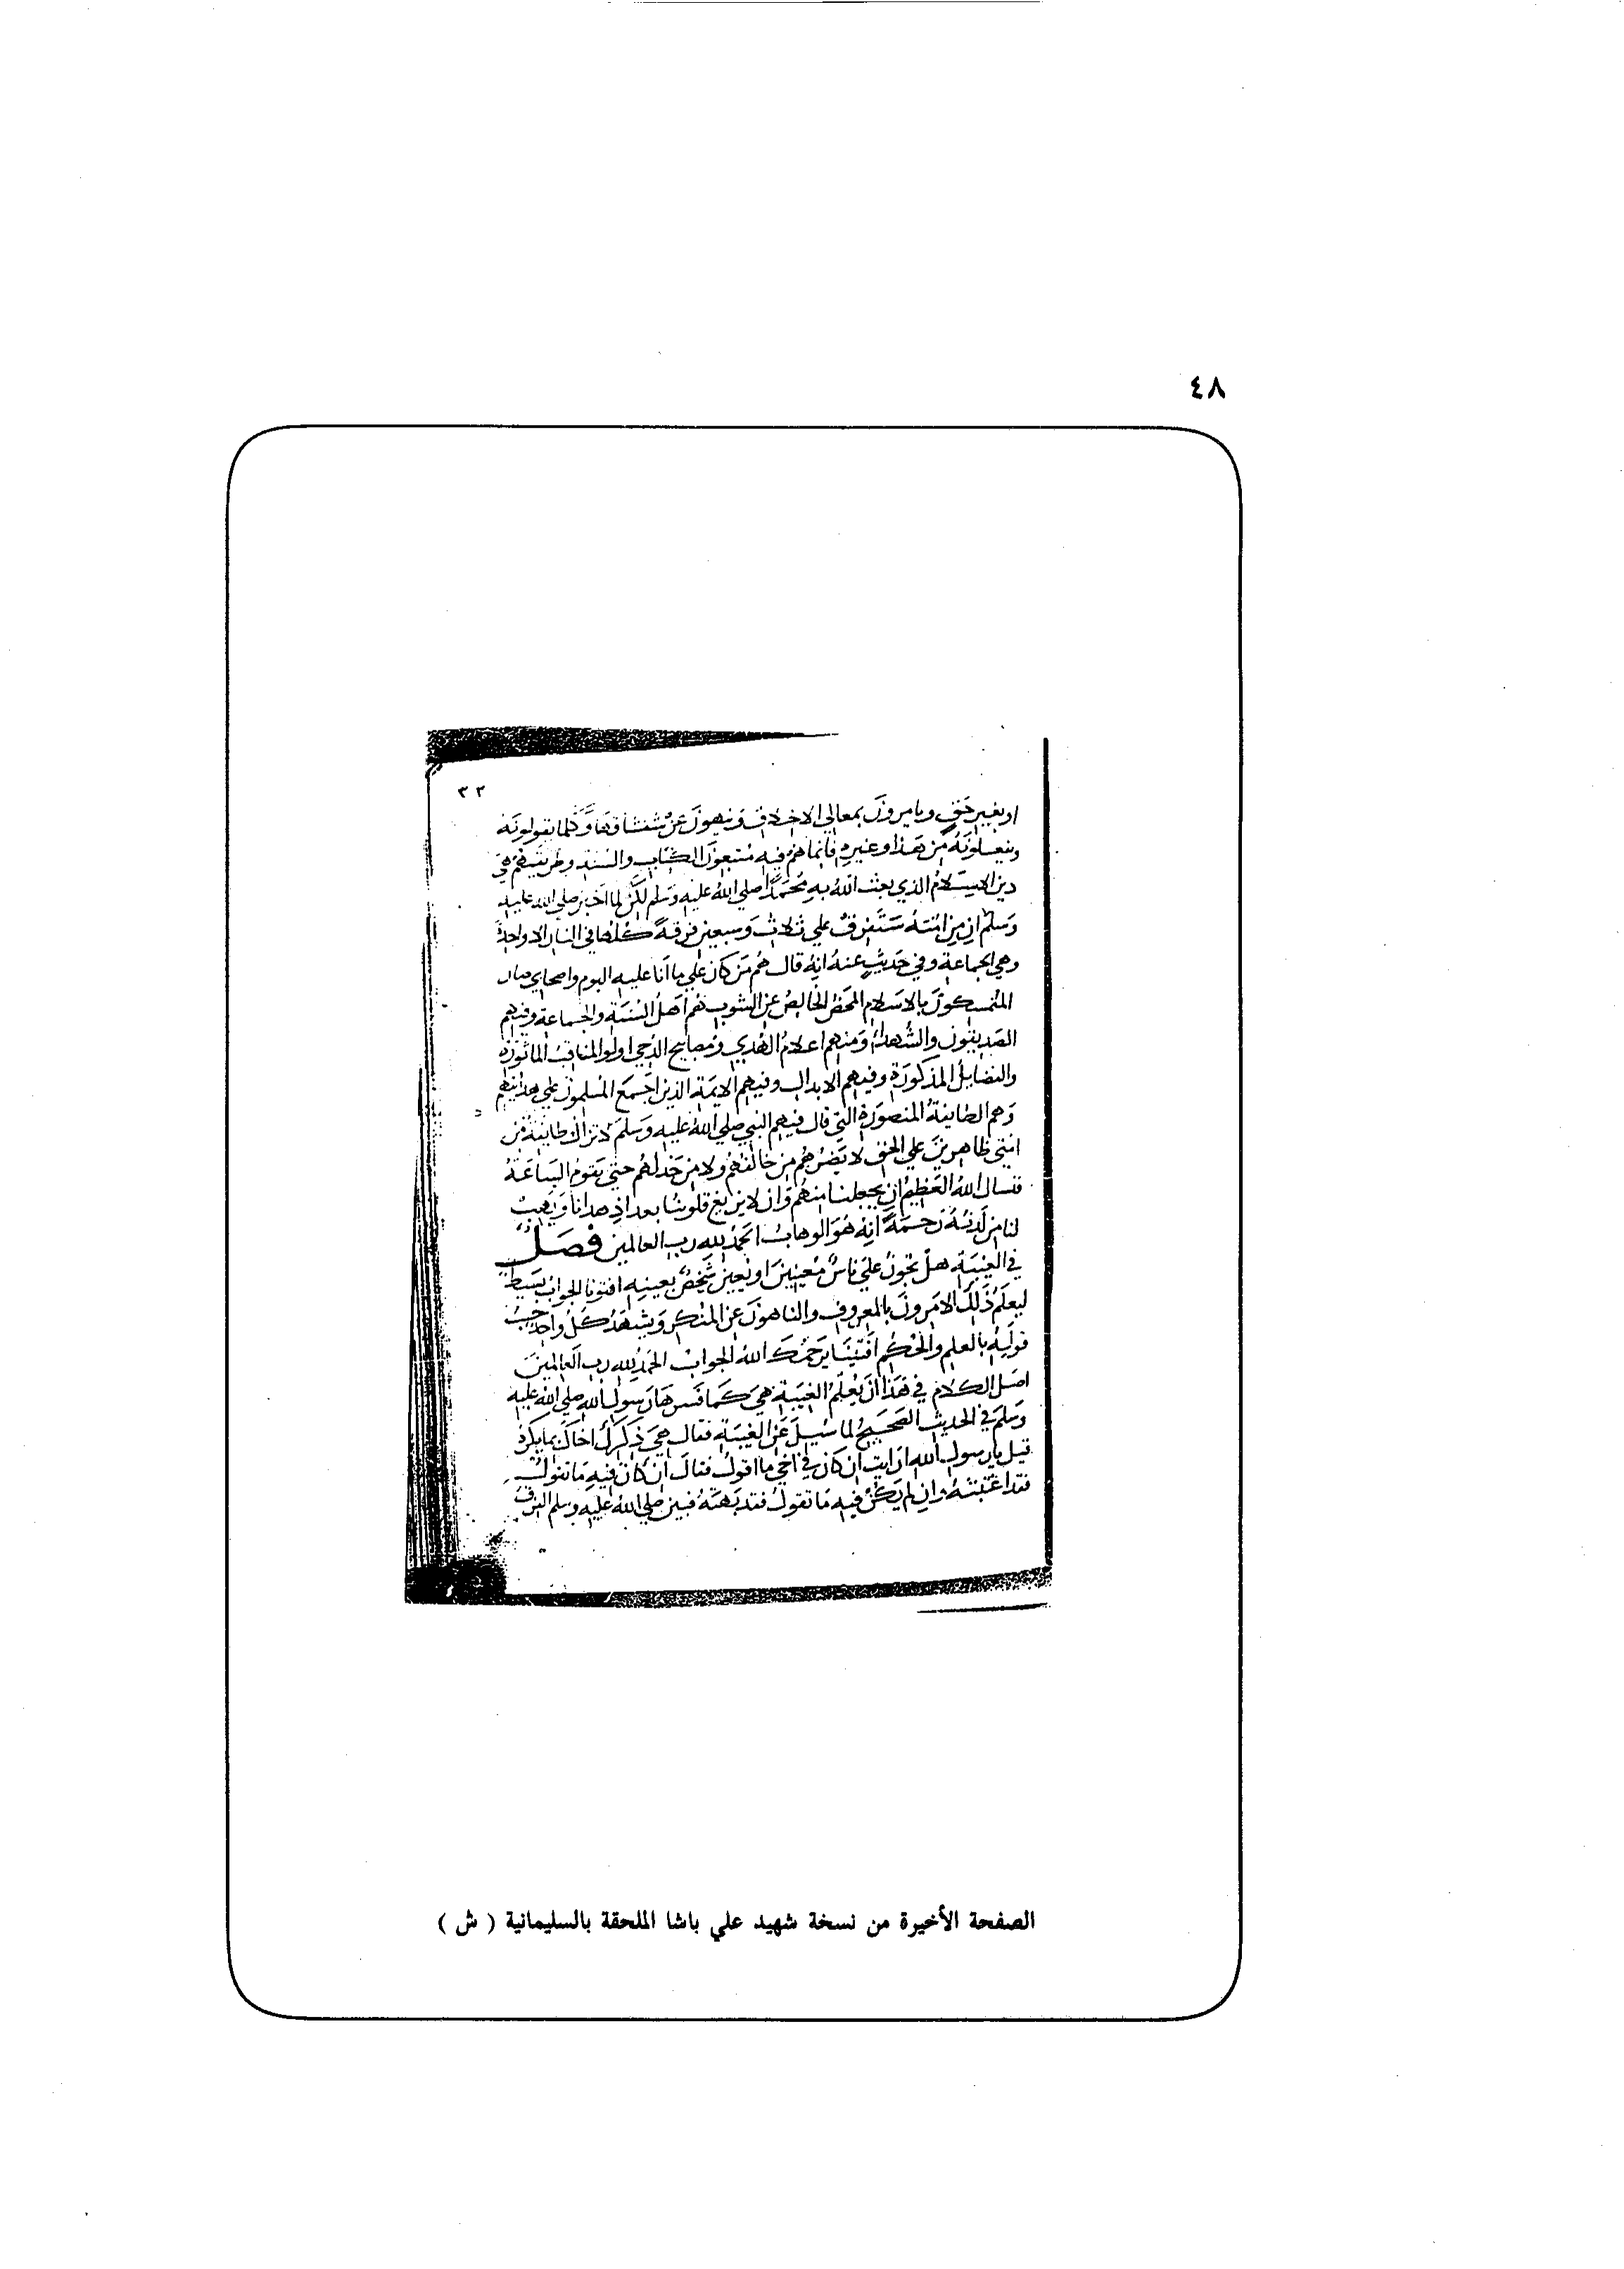 ٤٨
٣٢
او بغير حق ويامرون بمعالي الاخلاق وينهون عن سفسافها وكلما يقولونه
ويفعلونه من هذا وغيره فانما هم فيه متبعون الكتاب والسنة وطريقتهم هي
دين الاسلام الذي بعث الله به محمدا صلي الله عليه وسلم لكن لما اخبر صلي الله عليه
وسلم ان من امته ستفترق علي ثلاث وسبعين فرقة كلها في النار الا واحدة
وهي الجماعة وفي حديث عنه انه قال هم من كان علي ما انا عليه اليوم واصحابي صار
المتمسكون بالاسلام المحض الخالص عن الشوب هم اهل السنة والجماعة وفيهم
الصديقون والشهداء ومنهم اعلام الهدي ومصابيح الدجي اولو المناقب الماثورة
والفضايل المذكورة وفيهم الابدال وفيهم الايمة الذين اجمع المسلمون علي هدايتهم
وهم الطايفة المنصورة التي قال فيهم النبي صلي الله عليه وسلم لا تزال طايفة من
امتي ظاهرين علي الحق لا يضرهم من خالفهم ولا من خذلهم حتي تقوم الساعة
فنسال الله العظيم ان يجعلنا منهم وان لا يزيغ قلوبنا بعد اذ هدانا ويهب
لنا من لدنه رحمة انه هو الوهاب الحمد لله رب العالمين فصل
في الغيبة هل تجوز علي ناس معينين او تعيين شخص بعينه افتونا الجواب بسيط
ليعلم ذلك الامرون بالمعروف والناهون عن المنكر ويشهد كل واحد بحسب
قوله بالعلم والحكم افتينا يرحمك الله الجواب الحمد لله رب العالمين
اصل الكلام في هذا ان يعلم الغيبة هي كما فسرها رسول الله صلي الله عليه
وسلم في الحديث الصحيح لما سيل عن الغيبة فقال هي ذكرك اخاك بما يكره
قيل يا رسول الله ارايت ان كان في اخي ما اقول فقال ان كان فيه ما تقول
فقد اغتبته وان لم يكن فيه ما تقول فقد بهته فبين صلي الله عليه وسلم الفرق
الصفحة الأخيرة من نسخة شهيد علي باشا الملحقة بالسليمانية ( ش )